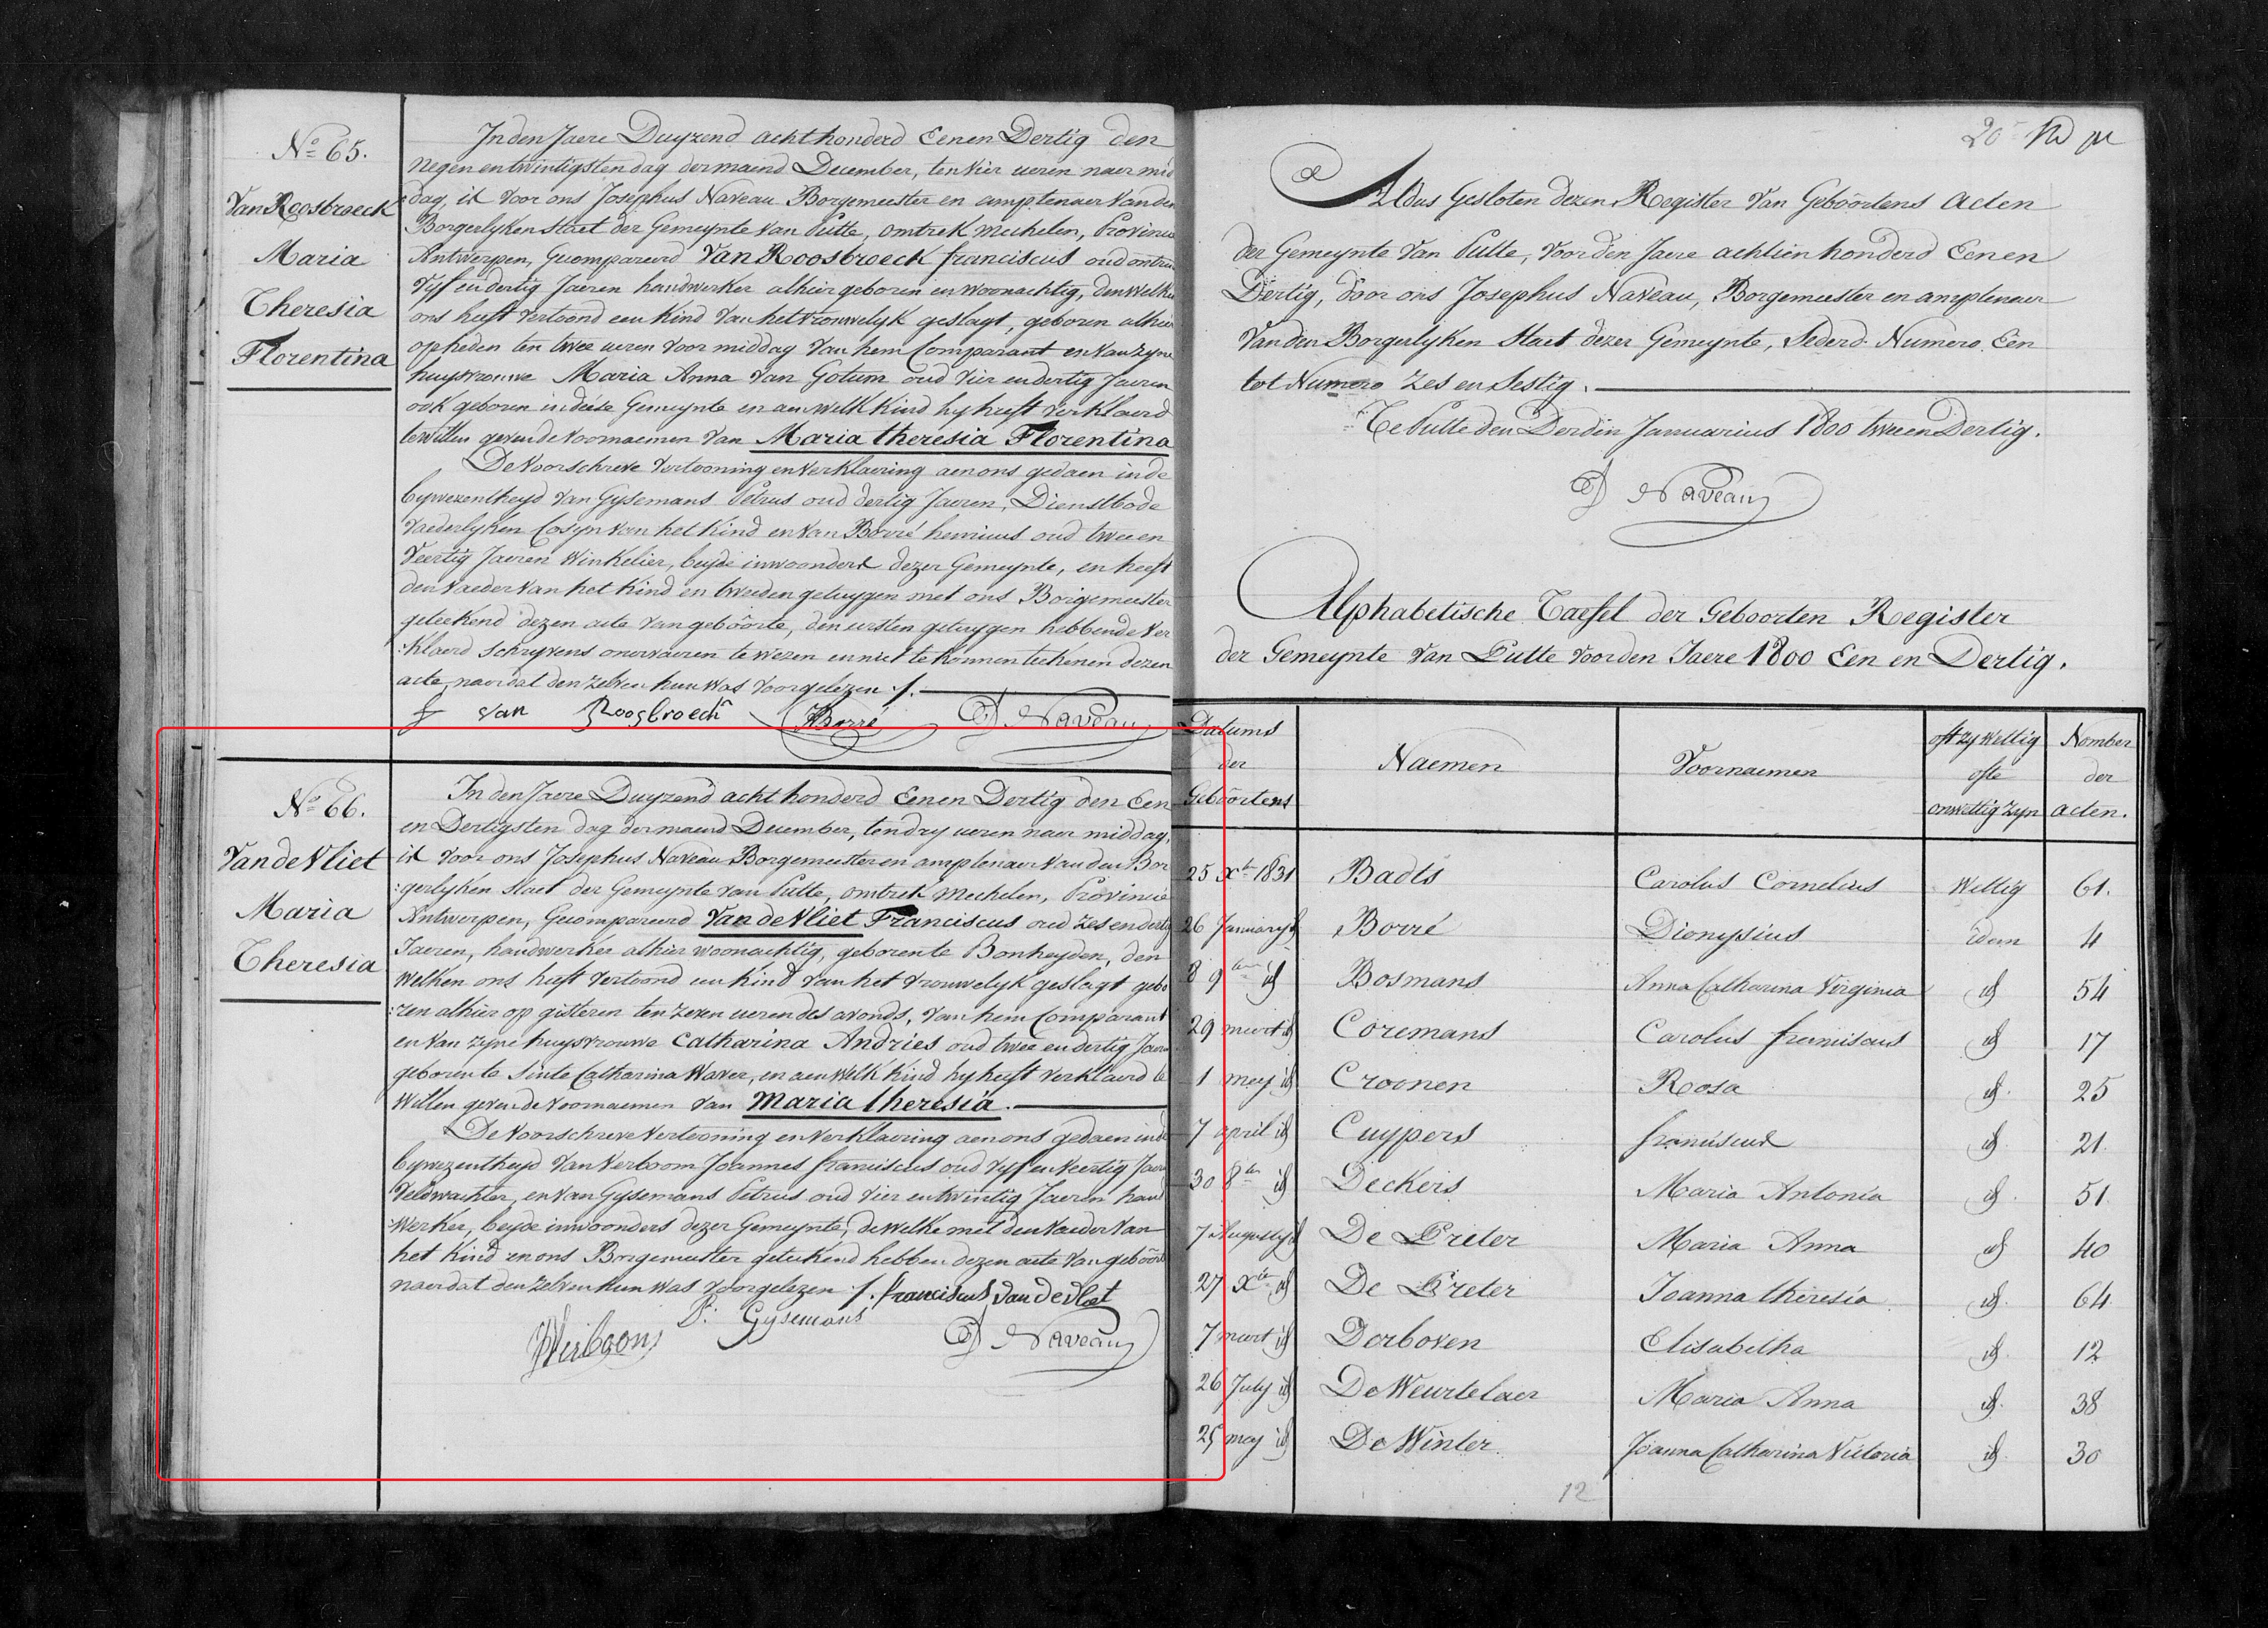 No 65.
Van Roosbroeck
Maria
Theresia
Florentina
In den Jaere Duyzend acht honderd Eenen Dertig den
negen entwintigsten dag der maend December, ten vier ueren naer mid
dag, is voor ons Josephus Naveau Borgemeester en amptenaer van den
Borgerlyken Staet der Gemeynte van Putte, omtrek Mechelen, Provincie
Antwerpen, Gecompareerd Van Roosbroeck franciscus oud ontrent
Vyf en dertig Jaeren handwerker alhier geboren en woonachtig, den welken
ons heeft vertoond een Kind van het vrouwelyk geslagt, geboren alhier
op heden ten twee ueren voor middag van hem Comparant en van zyne
huysvrouwe Maria Anna Van Gotum oud vier en dertig Jaeren
ook geboren in deése Gemeynte en aen welk Kind hy heeft verklaerd
te willen geven de voornaemen van Maria theresia Florentina
De voorschreve vertooning en verklaering aen ons gedaen in de
bywezentheyd van Gysemans Petrus oud dertig Jaeren, Dienstbode
vaderlyken Cosyn van het Kind en van Borré henricus oud twee en
Veertig Jaeren Winkelier, beyde inwoonders dezer Gemeynte, en heeft
den vaeder van het Kind en tweeden getuygen met ons Borgemeester
geteekend dezen acte van geboórte, den eersten getuygen hebbende ver
:klaerd schryvens onervaeren te wezen en niet te konnen teekenen dezen
acte, naer dat den zelven hun was voorgelezen ./.
f van Roosbroech
Borré
J Naveau
No 66.
Van de Vliet
Maria
Theresia
In den Jaere Duyzend acht honderd Eenen Dertig den Een
en Dertigsten dag der maend December, ten dry ueren naer middag,
is voor ons Josephus Naveau Borgemeester en amptenaer van den Bor
:gerlyken Staet der Gemeynte van Putte, omtrek Mechelen, Provincie
Antwerpen, Gecompareerd Van de Vliet Franciscus oud zes en dertig
Jaeren, handwerker alhier woonachtig, geboren te Bonheyden, den
Welken ons heeft vertoond een Kind van het vrouwelyk geslagt gebo
:ren alhier op gisteren ten zeven ueren des avonds, van hem Comparant
en van zyne huysvrouwe Catharina Andries oud twee en dertig Jaeren
geboren te Sinte Catharina Waver, en aen welk Kind hy heeft verklaerd te
Willen geven de voornaemen van Maria theresia.
De voorschreve vertooning en verklaering aen ons gedaen in de
bywezentheyd van Verboom Joannes franciscus oud vyf en veertig Jaeren
Veldwachter, en van Gysemans Petrus oud vier en twintig Jaeren hand
Werker, beyde inwoonders dezer Gemeynte, de welke met den vaeder van
het Kind en ons Borgemeester geteekend hebben dezen acte van geboórte
naer dat den zelven hun was voorgelezen ./. franciscus van de vliet
P. Gysemans
Verboom
J Naveau
20
Aldus Gesloten dezen Register van Geboórtens Acten
der Gemeynte van Putte, voor den Jaere achtien honderd Eenen
Dertig, door ons Josephus Naveau, Borgemeester en amptenaer
van den Borgerlyken Staet dezer Gemeynte, Sederd Numero Een
tot Numero Zes en Sestig.
Te Putte den Derden Januarius 1800 twee en Dertig.
J Naveau
Alphabetische Taefel der Geboorten Register
der Gemeynte van Putte voor den Jaere 1800 Een en Dertig.
Datums der Geboórtens Naemen Voornaemen oft zy wettig ofte onwettig zyn Nomber der acten.
25 Xbr 1831 Badts Carolus Cornelius Wettig 61.
26 January id Borré Dionysius idem 4
8 9ber id Bosmans Anna Catharina Virginia id 54
29 meert id Coremans Carolus franciscus id 17
1 mey id Croonen Rosa id. 25
7 april id Cuypers franciscus id. 21.
30 8ber id Deckers Maria Antonia id. 51
7 Augusty id De Preter Maria Anna id 40
27 Xbr id De Preter Joanna theresia id. 64
7 meert id Derboven Elisabetha id. 12
26 July id De Weurtelaer Maria Anna id. 38
25 mey id De Winter Joanna Catharina Victoria id. 30
12